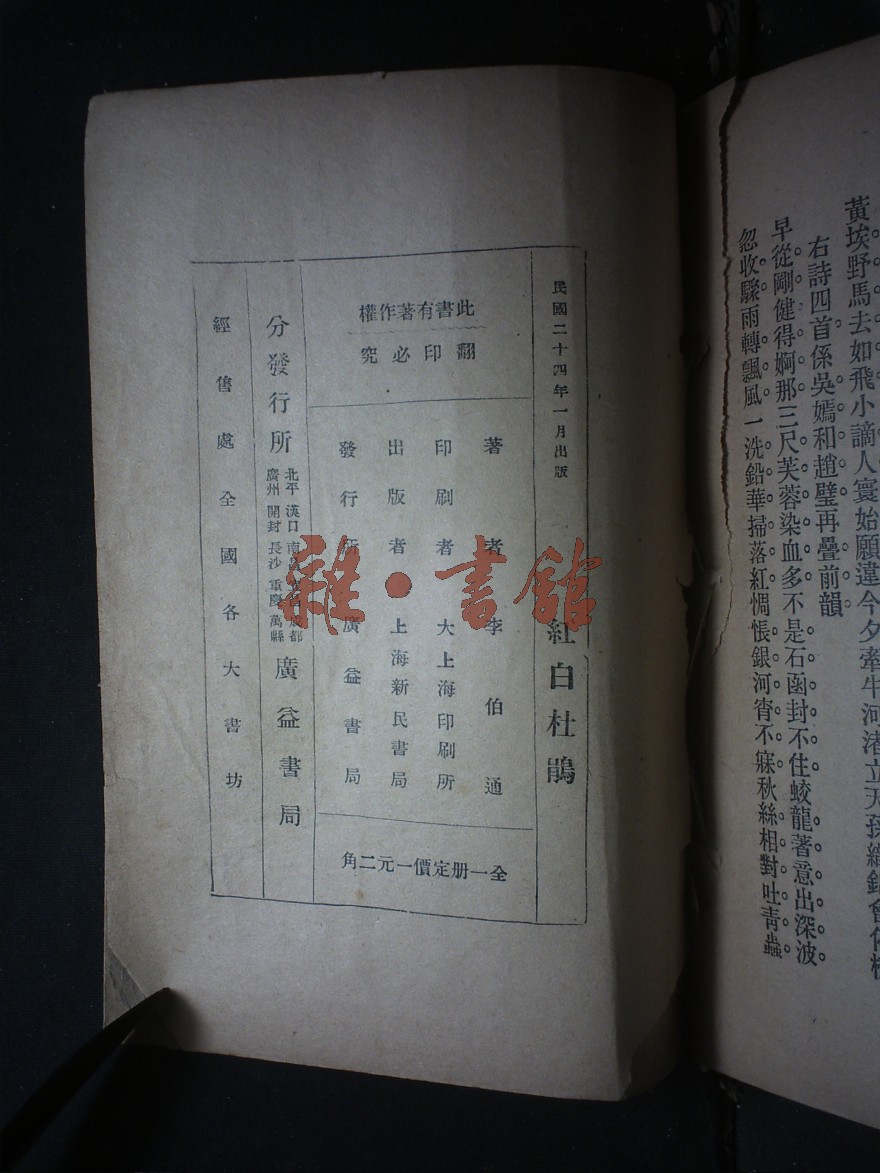 黃埃野馬去如飛小謫人寰始願違今夕牽牛河渚立天孫織錦會
右詩四首係吳嫣和趙璧再疊前韻
早從剛健得婀那三尺芙蓉染血多不是石函封不住蛟龍著意出深波
忽收驟雨轉飄風一洗鉛華掃落紅惆悵銀河宵不寐秋絲相對吐青蟲
民國二十四年一月出版
紅白杜鵑
此書有著作權
翻印必究
著者李伯通
印刷者大上海印刷所
出版者上海新民書局
發行所廣益書局
全一册定價一元二角
分發行所
北平 漢口 南昌
成都
廣州 開封 長沙 重慶 萬縣
廣益書局
經售處全國各大書坊
雜·書館